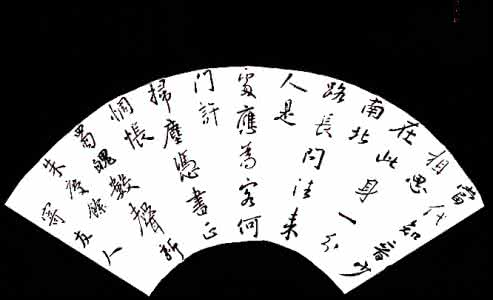 當代知音少
相思
在此身一分
南北
路長問往来
人是
處應為客何
門許
掃塵憑書正
惆悵
蜀魄數聲新
朱慶餘寄友人